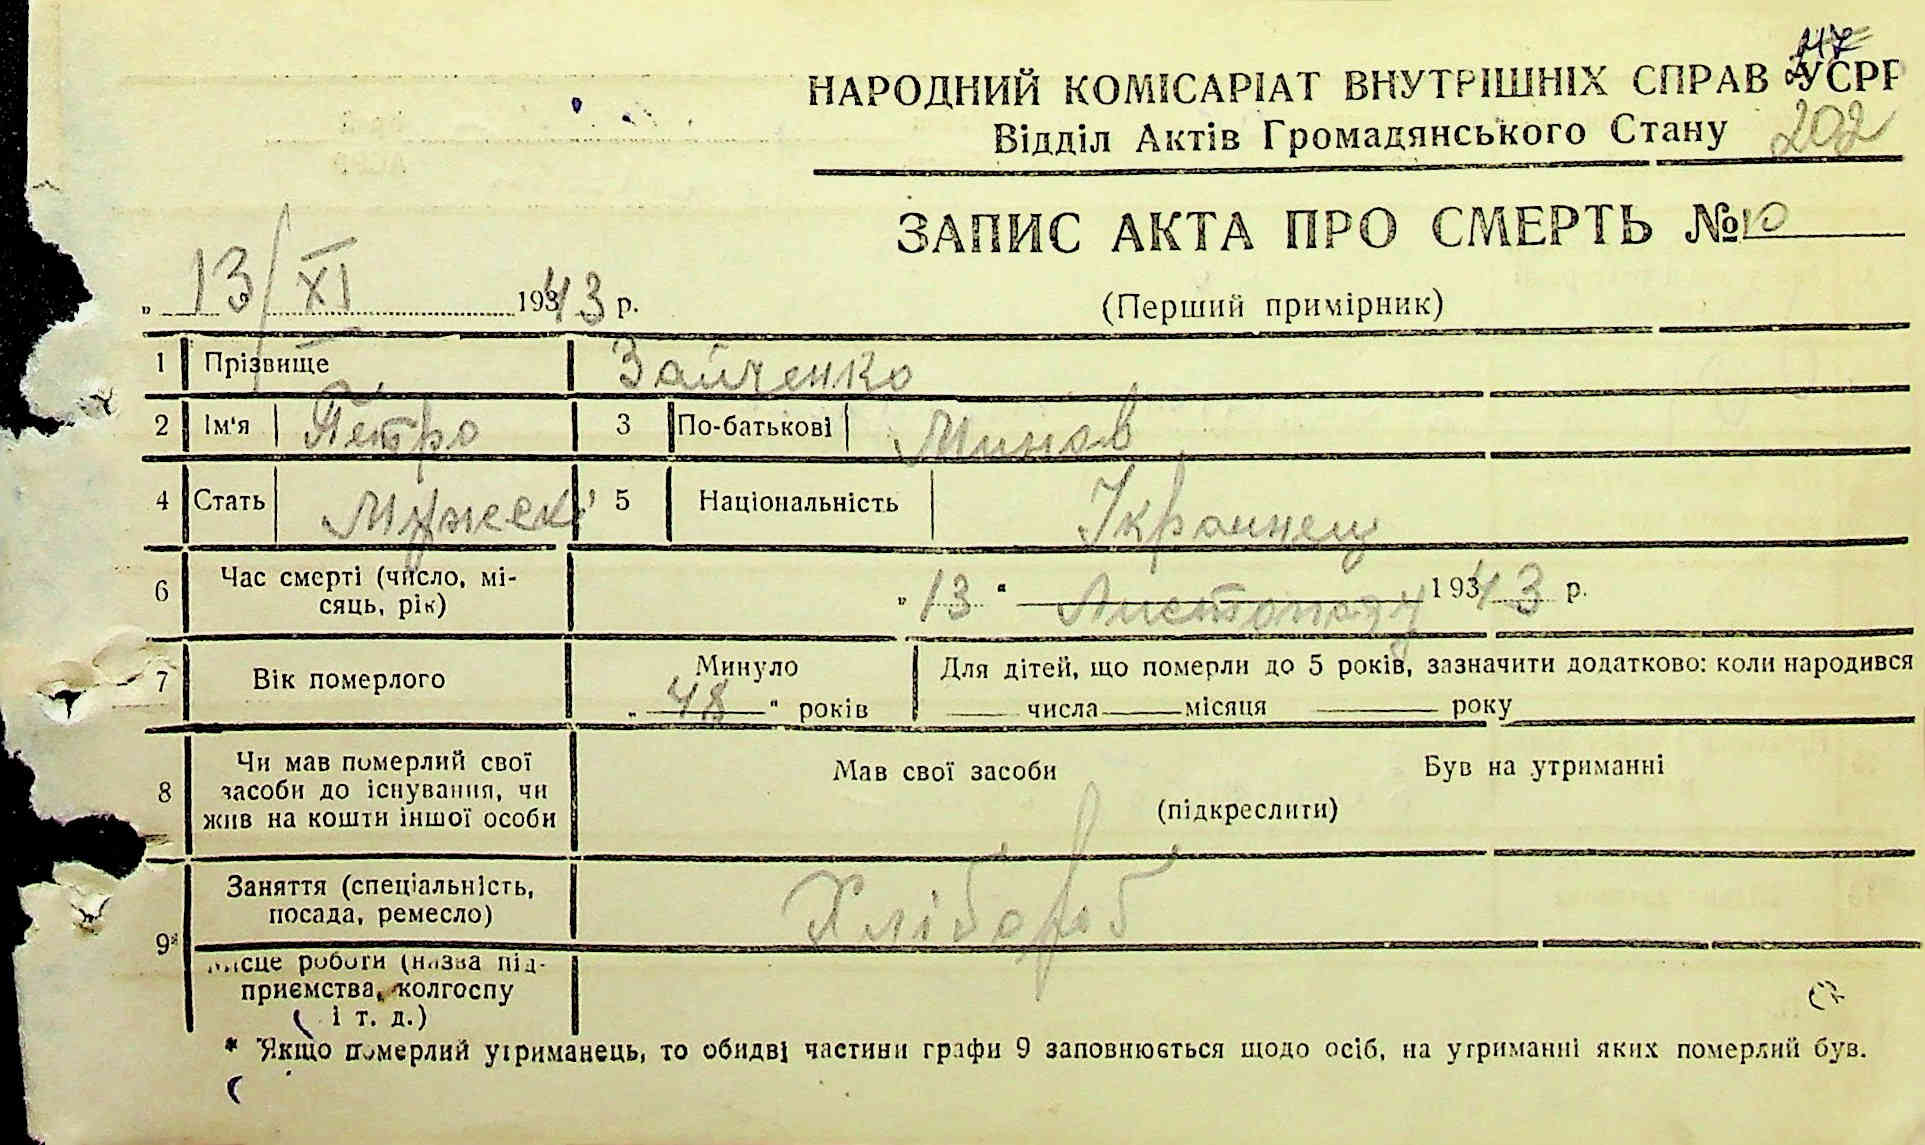 217
НАРОДНИЙ КОМІСАРІАТ ВНУТРІШНІХ СПРАВ УСРР
Відділ Актів Громадянського Стану 202
ЗАПИС АКТА ПРО СМЕРТЬ № 10
„ 13/XI 1943 р.
(Перший примірник)
1 Прізвище Зайченко
2 Ім'я Петро 3 По-батькові Минов
4 Стать Мужескі 5 Національність Украинец
6 Час смерті (число, мі-
сяць, рік) „ 13 “ Листопаду 1943 р.
7 Вік померлого Минуло „ 48 “ років
Для дітей, що померли до 5 років, зазначити додатково: коли народився
числа місяця року
8 Чи мав померлий свої
засоби до існування, чи
жив на кошти іншої особи
Мав свої засоби Був на утриманні
(підкреслити)
9* Заняття (спеціальність,
посада, ремесло) Хлібороб
Місце роботи (назва під-
приємства, колгоспу
і т. д.)
* Якщо померлий утриманець, то обидві частини графи 9 заповнюється щодо осіб, на утриманні яких померлий був.